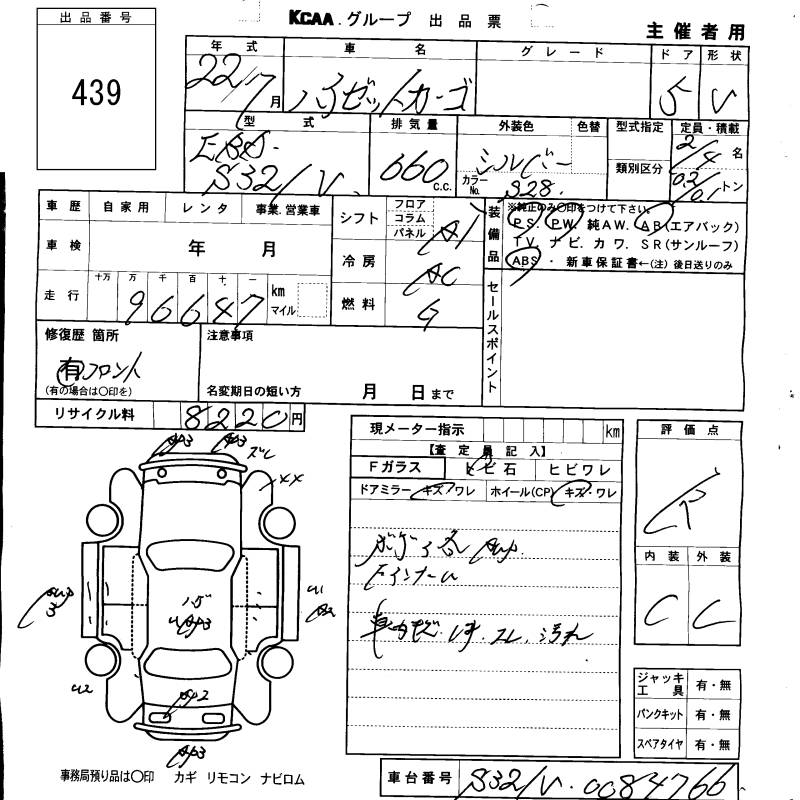 KCAA.グループ 出品票
主催者用
出品番号
439
年式 車名 グレード ドア 形状
22/7月 ハイゼットカーゴ 5 V
型式 排気量 外装色 色替 型式指定 定員・積載
EBD- 660 c.c. シルバー 2/4 名
S321V カラーNo. S28 類別区分 0.2/0.1 トン
車歴 自家用 レンタ 事業.営業車
シフト フロア コラム パネル AT
装備品 ※純正のみ〇印をつけて下さい。
PS. PW. 純AW. AB(エアバック)
TV. ナビ. カワ. SR(サンルーフ)
ABS ・ 新車保証書←(注) 後日送りのみ
車検 年 月
冷房 AC
走行 十万 万 千 百 十 一 km マイル
96647
燃料 G
セールスポイント
修復歴 箇所
有 フロント
(有の場合は〇印を)
注意事項
名変期日の短い方 月 日まで
リサイクル料 8220円
現メーター指示 km
【査定員記入】
Fガラス トビ石 ヒビワレ
ドアミラー キズ・ワレ ホイール(CP) キズ・ワレ
ボデイ各
車内 汚れ
評価点
R
内装 外装
C C
ズレ
XX
U2
ジャッキ工具 有・無
パンクキット 有・無
スペアタイヤ 有・無
事務局預り品は〇印 カギ リモコン ナビロム
車台番号 S321V-0084766